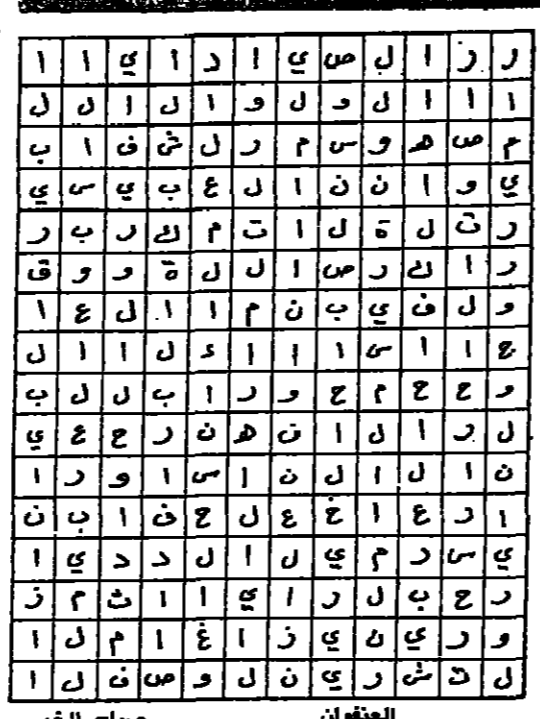 ر ز ا ل ص ي ا د ا ي ا ا
ا ا ا ل و ل و ا ل ا ل ل
م ص ه و س م ر ل ش ف ا ب
ي و ا ن ن ا ل ع ب ي س ي
ر ت ل ة ل ا ت م ك ر ب ر
ر ا ك ر ص ا ل ل ة و و ق
و ل ف ي ب ن م ا ا ل ع ا
ج ا ا س ا ا ا ء ل ا ا ل
و ح ح م ح و ر ا ب ل ل ب
ل ر ا ل ا ن ه ن ر ح ع ي
ن ا ل ا ل ن ا س ا و ر ا
ا ر ع ا خ ع ل ح ف ا ب ن
ي س ر م ي ل ا ل د د ي ا
ر ح ب ل ر ا ي ا ا ث م ز
و ر ي ن ي ز ا غ ا م ل ا
ل ت ش ر ي ن ل و ص ف ل ا
العنفوان